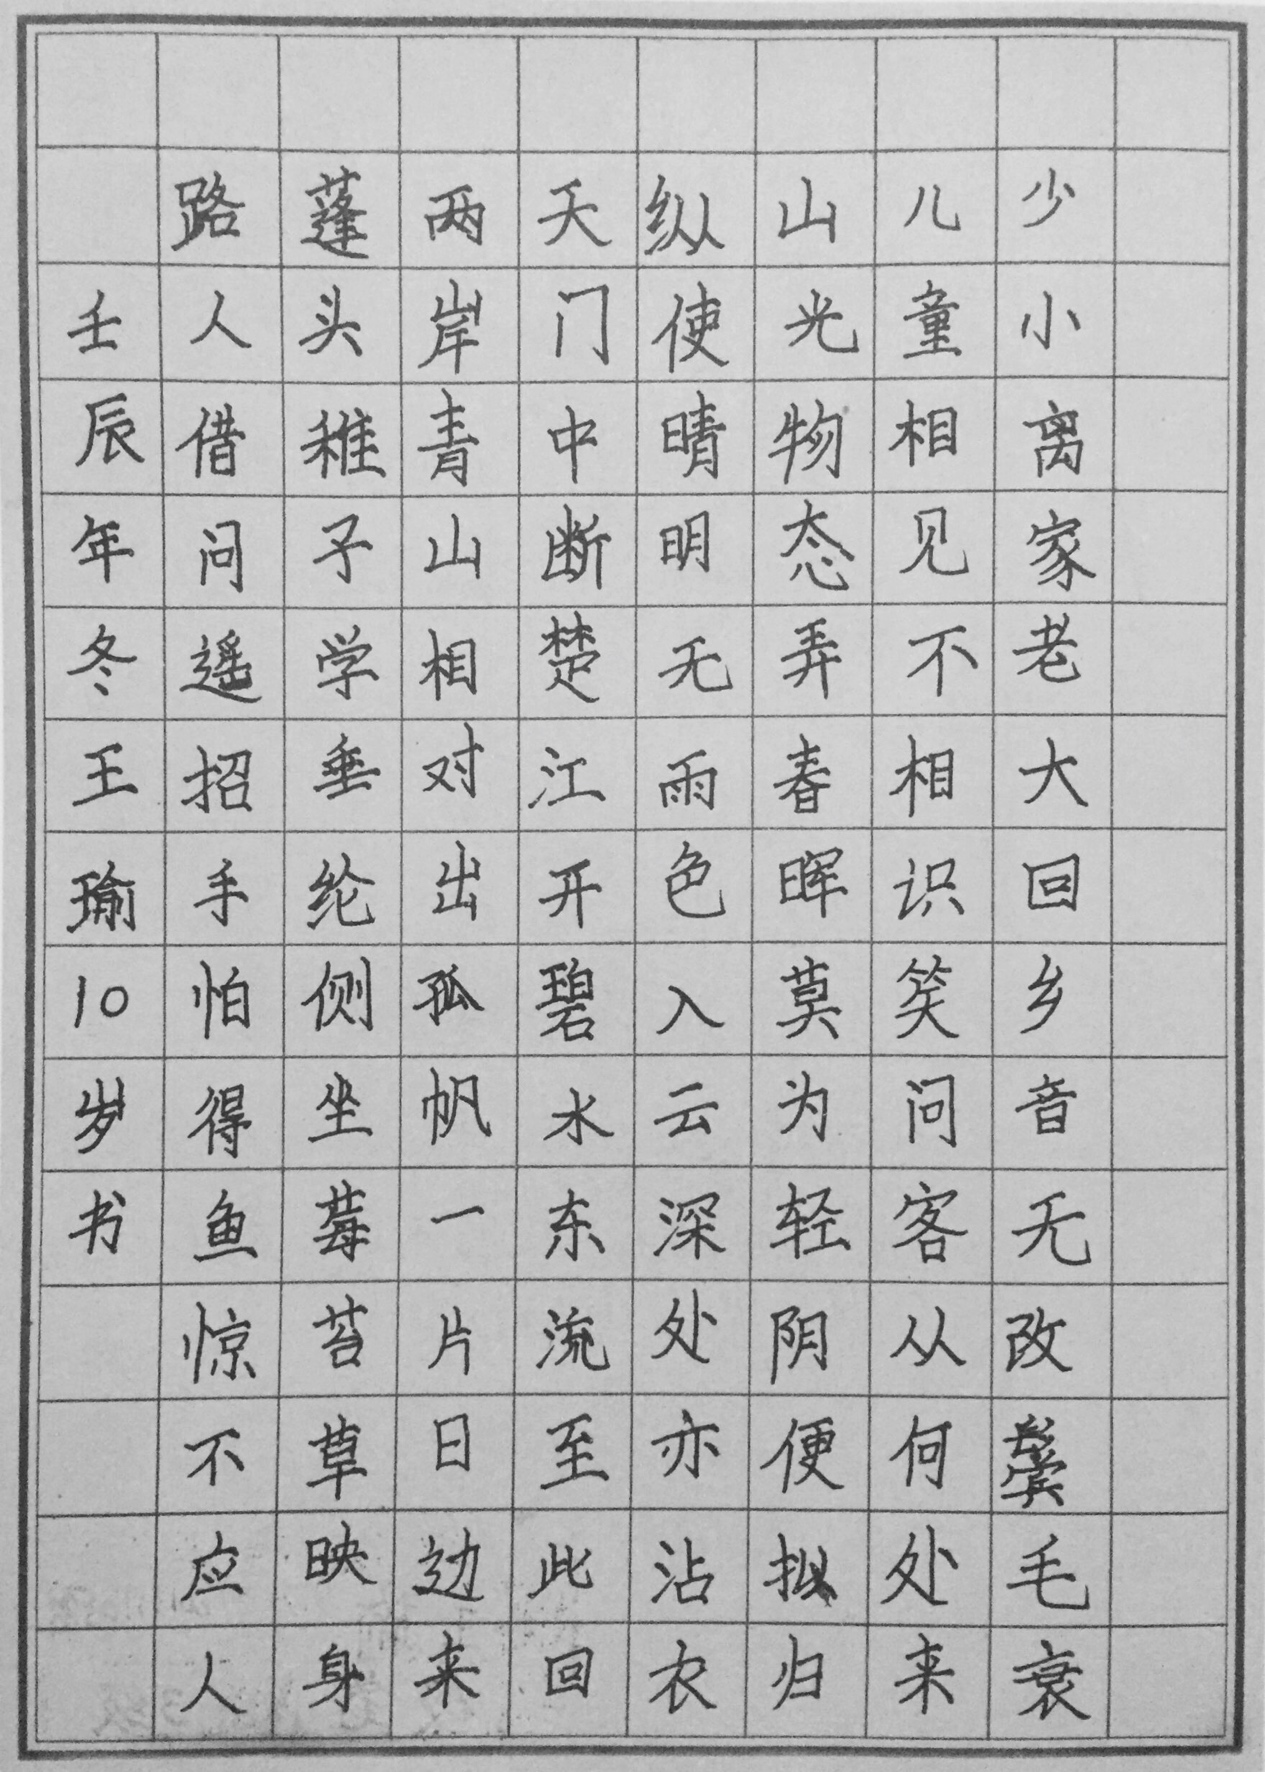 少小离家老大回乡音无改鬓毛衰
儿童相见不相识笑问客从何处来
山光物态弄春晖莫为轻阴便拟归
纵使晴明无雨色入云深处亦沾衣
天门中断楚江开碧水东流至此回
两岸青山相对出孤帆一片日边来
蓬头稚子学垂纶侧坐莓苔草映身
路人借问遥招手怕得鱼惊不应人
壬辰年冬王瑜10岁书